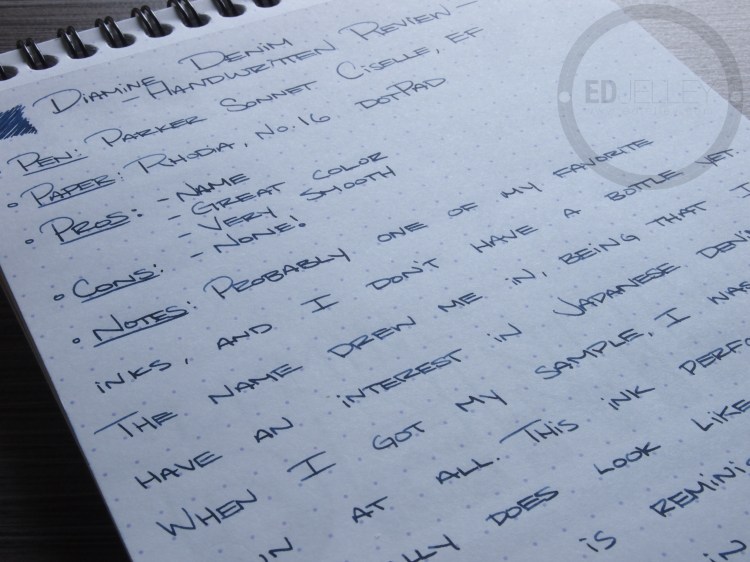 DIAMINE DENIM
- HANDWRITTEN REVIEW -
• PEN: PARKER SONNET CISELLE, EF
• PAPER: RHODIA, NO. 16 DOTPAD
• PROS: - NAME
- GREAT COLOR
- VERY SMOOTH
• CONS: - NONE!
• NOTES: PROBABLY ONE OF MY FAVORITE
INKS, AND I DON'T HAVE A BOTTLE YET.
THE NAME DREW ME IN, BEING THAT I
HAVE AN INTEREST IN JAPANESE DENIM
WHEN I GOT MY SAMPLE, I WAS
AT ALL. THIS INK
DOES LOOK LIKE
IS
IN
ED JELLEY